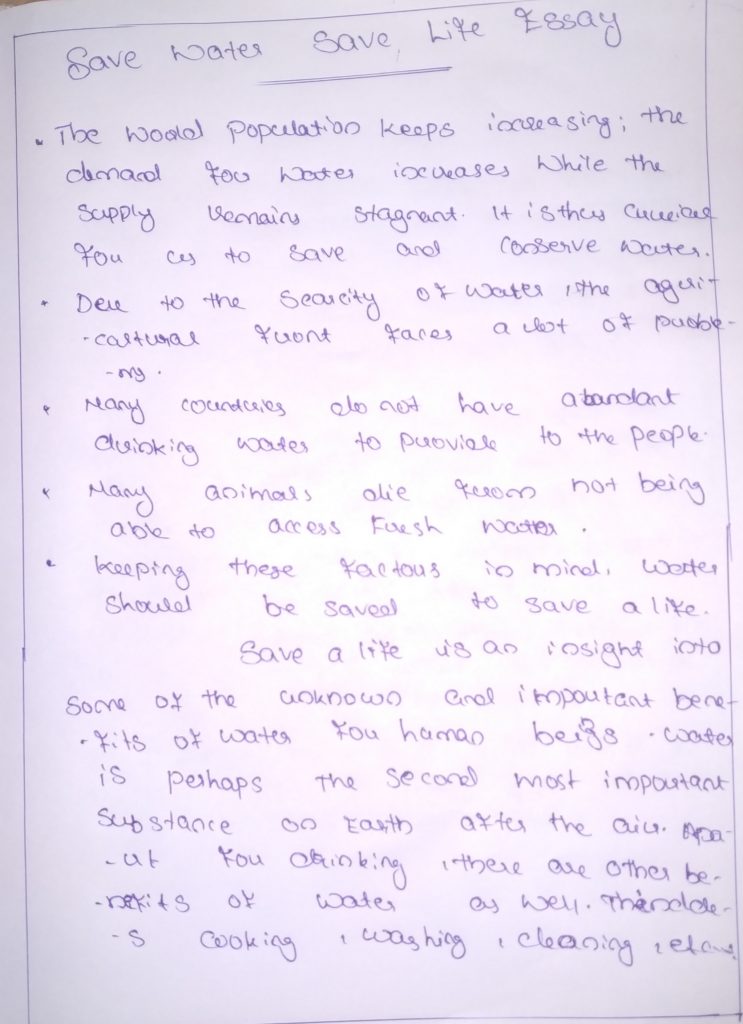 Save Water Save Life Essay
The World Population keeps increasing; the
demand for water increases while the
supply remains stagnant. It is thus crucial
for us to save and conserve water.
Due to the Scarcity of water, the agri-
-cultural front faces a lot of proble-
-ms.
Many countries do not have abandant
drinking water to provide to the people.
Many animals die from not being
able to access fresh water.
keeping these factors in mind, water
should be saved to save a life.
Save a life is an insight into
Some of the unknown and important bene-
-fits of water for human beings. water
is perhaps the second most important
substance on Earth after the air. Apa-
-rt for drinking, there are other be-
-nefits of water as well.
-s cooking, washing, cleaning, etc.